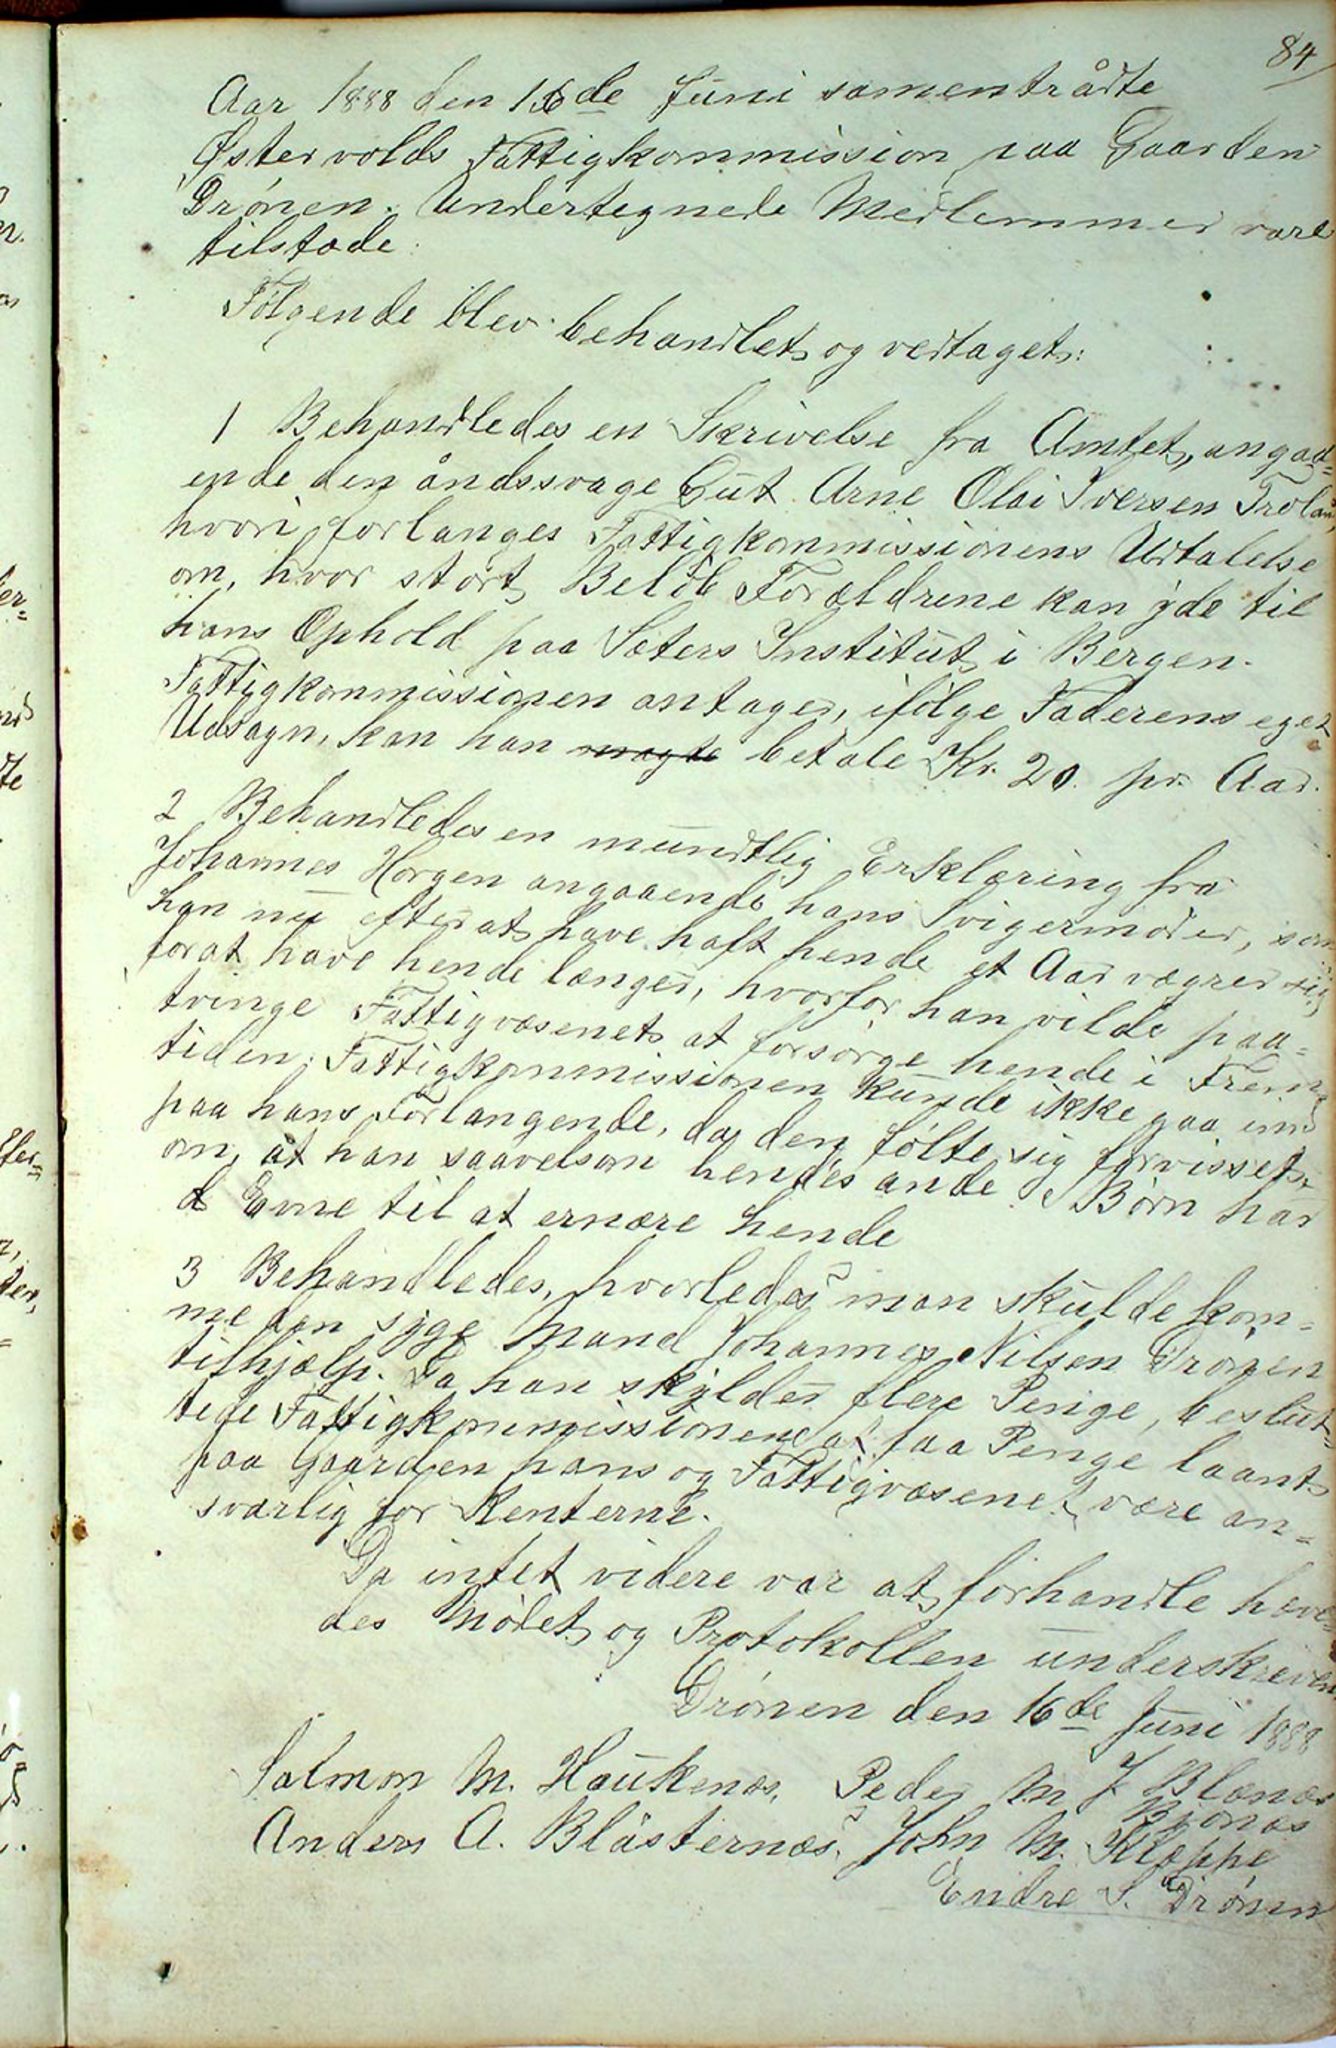 84
Aar 1888 den 16de Juni samentrådte
Østervolds Fattigkommission paa Gaarden
Drønen. Undertegnede Medlemmer vare
tilstede.
Følgende blev behandlet og vedtaget:
1 Behandledes en Skrivelse fra Amtet, angaa=
ende den åndssvage Gut Arne Olai Iversen Trolan
hvori forlanges Fattigkommissionens Udtalelse
om, hvor stort Beløb Forældrene kan yde til
hans Ophold paa Sæters Institut i Bergen.
Fattigkommissionen antager, ifølge Faderens eget
Udsagn, kan han magte betale Kr. 20. pr. Aar.
2 Behandledes en mundtlig Erklæring fra
Johannes Horgen angaaende hans Svigermoder, som
han nu efter at have haft hende et Aar vægrer sig
for at have hende længer, hvorfor han vilde paa=
tvinge Fattigvæsenet at forsørge hende i Frem=
tiden. Fattigkommissionen kunde ikke gaa ind
paa hans Forlangende, da den følte sig forvisset
om, at han saavelsom hendes ande Børn har
Evne til at ernære hende
3 Behandledes, hvorledes man skulde kom=
me den syge Mand Johannes Nilsen Drønen
tilhjælp. Da han skylder flere Penge, beslut=
tede Fattigkommissionen at faa Penge laant
paa Gaarden hans og Fattigvæsenet være an=
svarlig for Renterne.
Da intet videre var at forhandle hæve=
des Mødet og Protokollen underskreven
Drønen den 16de Juni 1888
Salmon M. Haukenæs, Peder M J Blænæs
Bjonæs
Anders A. Blåsternæs, John M. Kleppe
Endre S. Drønen